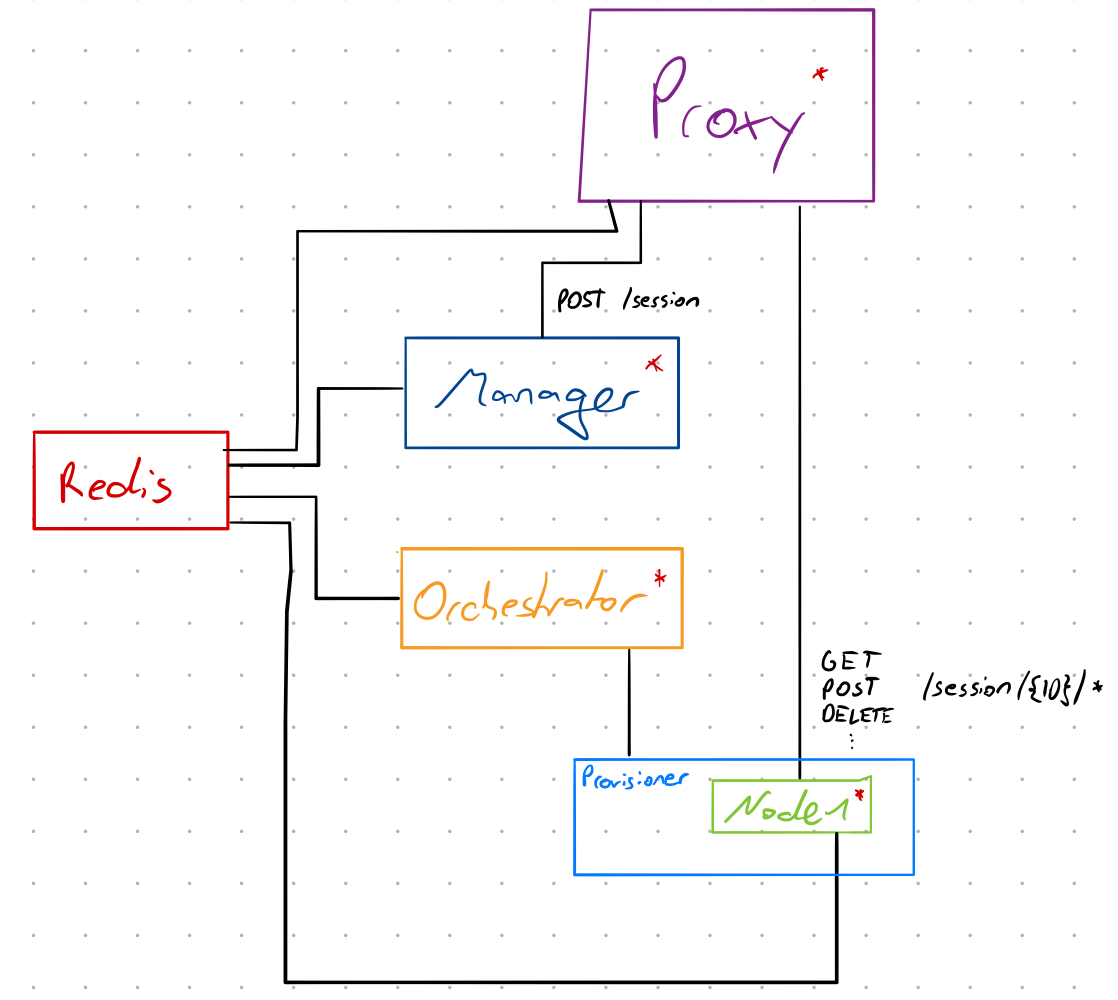 Proxy *
POST /session
Manager *
Redis
Orchestrator *
GET
POST /session/{ID}/*
DELETE
⋮
Provisioner
Node1 *